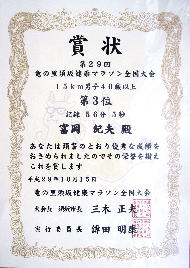 賞状
第29回
竜の里須坂健康マラソン全国大会
15km男子40歳以上
第3位
記録 56分5秒
富岡 紀夫 殿
あなたは頭書のとおり優秀な成績を
おさめられましたのでその栄誉を讃え
これを賞します
平成29年10月15日
竜の里須坂健康マラソン全国大会
大会長 須坂市長 三木 正夫
実行委員長 保田 明康